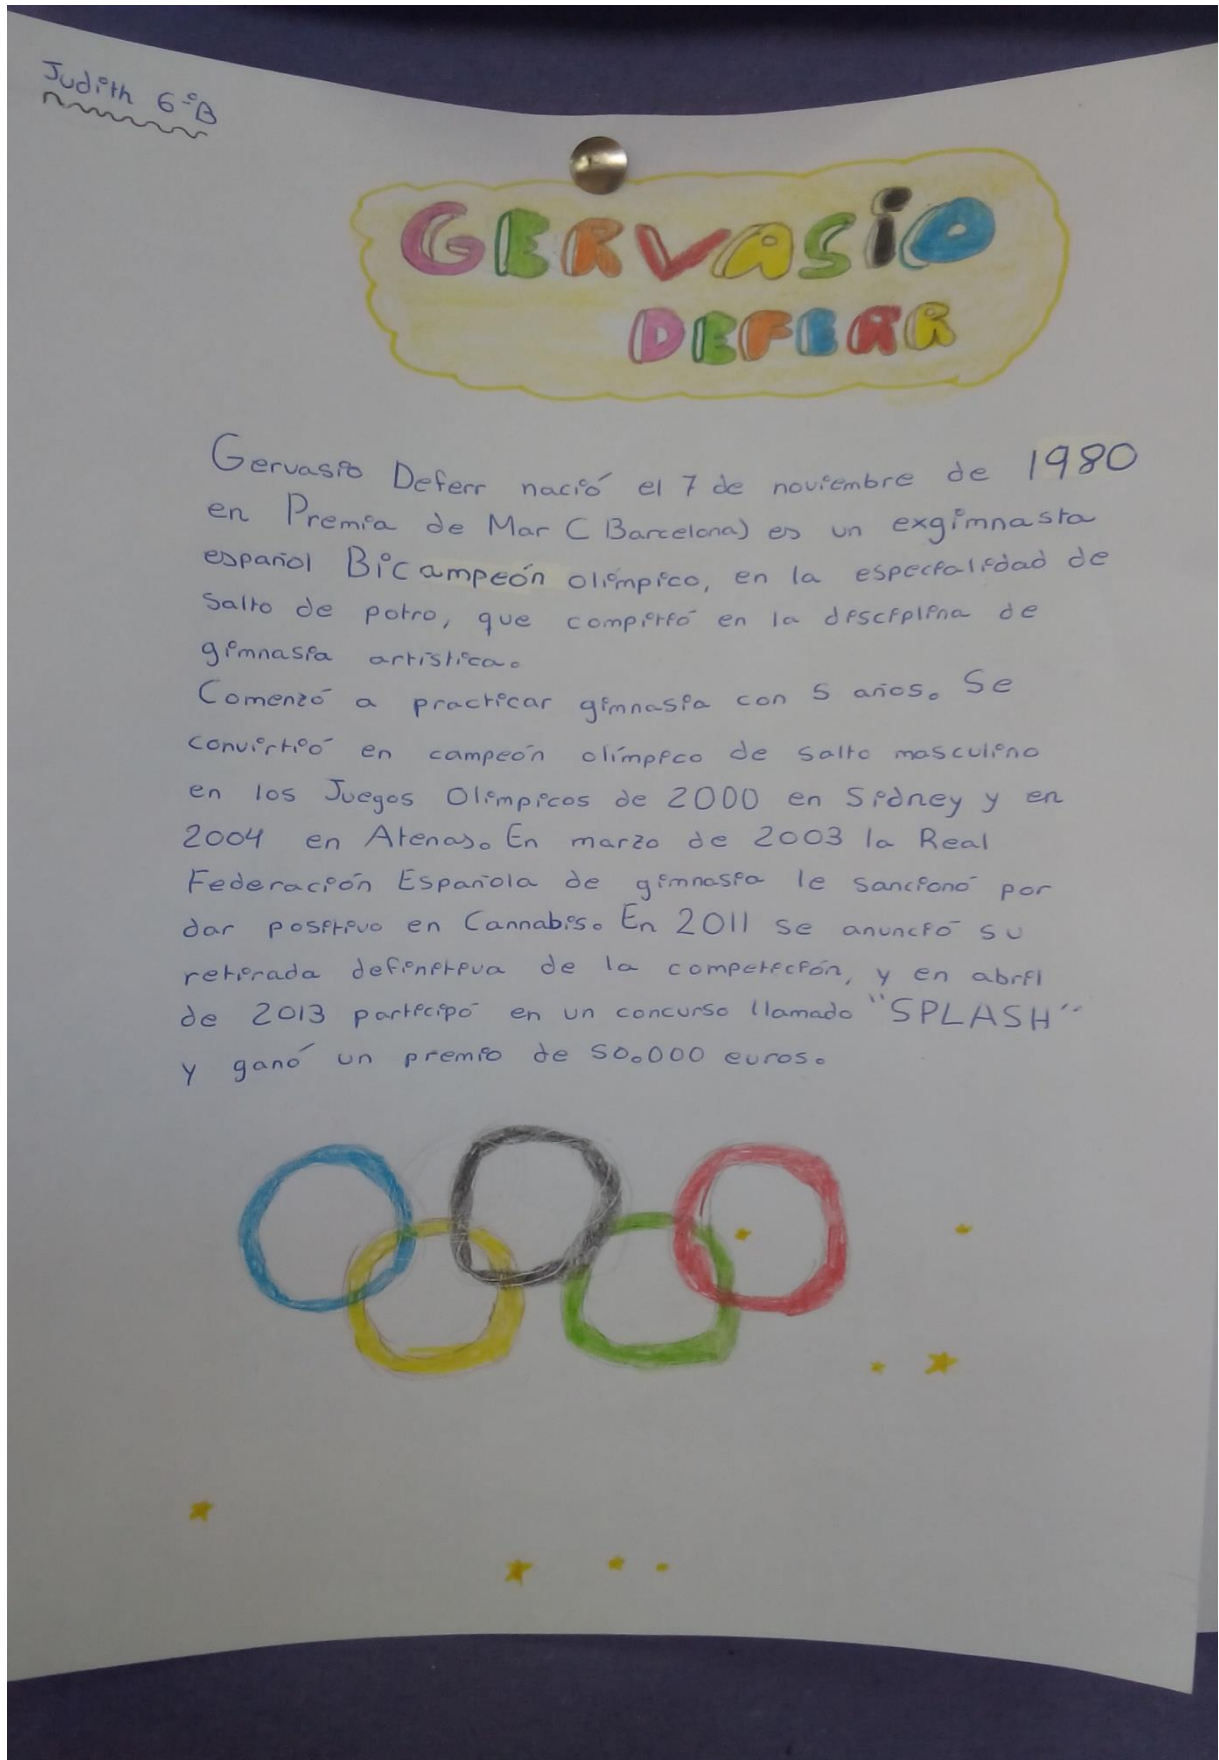 Judith 6ºB
GERVASIO
DEFERR
Gervasio Deferr nació el 7 de noviembre de 1980
en Premia de Mar (Barcelona) es un exgimnasta
español Bicampeón olímpico, en la especialidad de
salto de potro, que compitió en la disciplina de
gimnasia artística.
Comenzó a practicar gimnasia con 5 años. Se
convirtió en campeón olímpico de salto masculino
en los Juegos Olímpicos de 2000 en Sidney y en
2004 en Atenas. En marzo de 2003 la Real
Federación Española de gimnasia le sancionó por
dar positivo en Cannabis. En 2011 se anunció su
retirada definitiva de la competición, y en abril
de 2013 participó en un concurso llamado "SPLASH"
y ganó un premio de 50.000 euros.